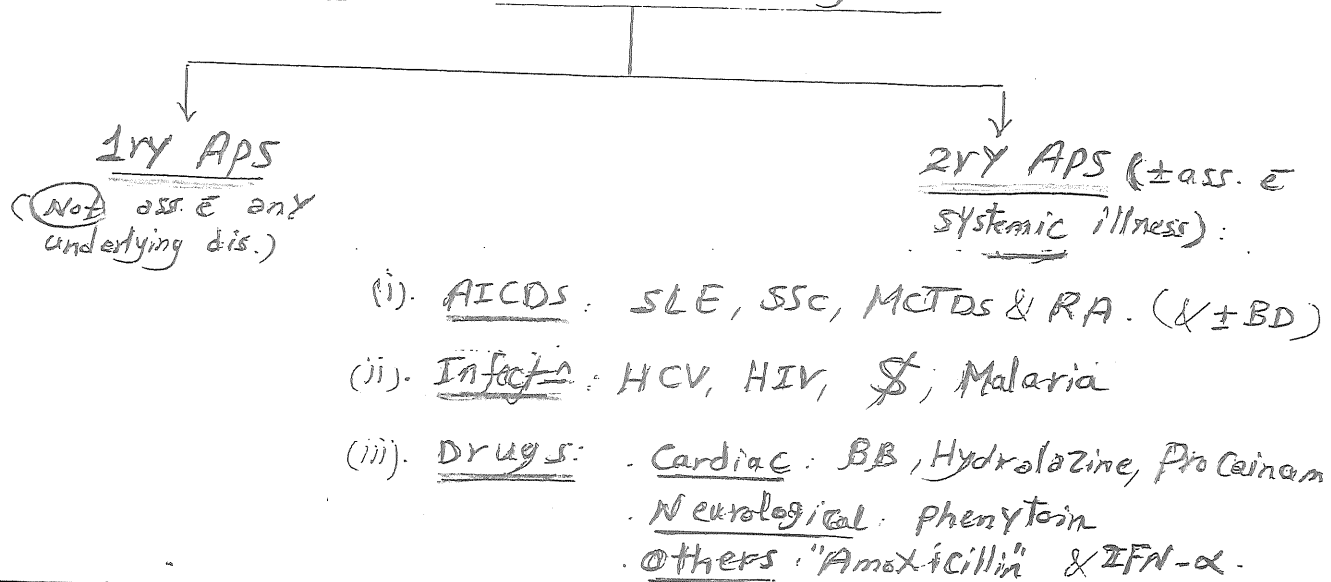 1ry APS
(Not ass. c̄ any
underlying dis.)
2ry APS (±ass. c̄
systemic illness):
(i). AICDS: SLE, SSc, MCTDS & RA. (& ± BD)
(ii). Infect-n: HCV, HIV, $, Malaria
(iii). Drugs: . Cardiac: BB, Hydralazine, Procainam
. Neurological: phenytoin
. Others: "Amoxicillin" & IFN-α.